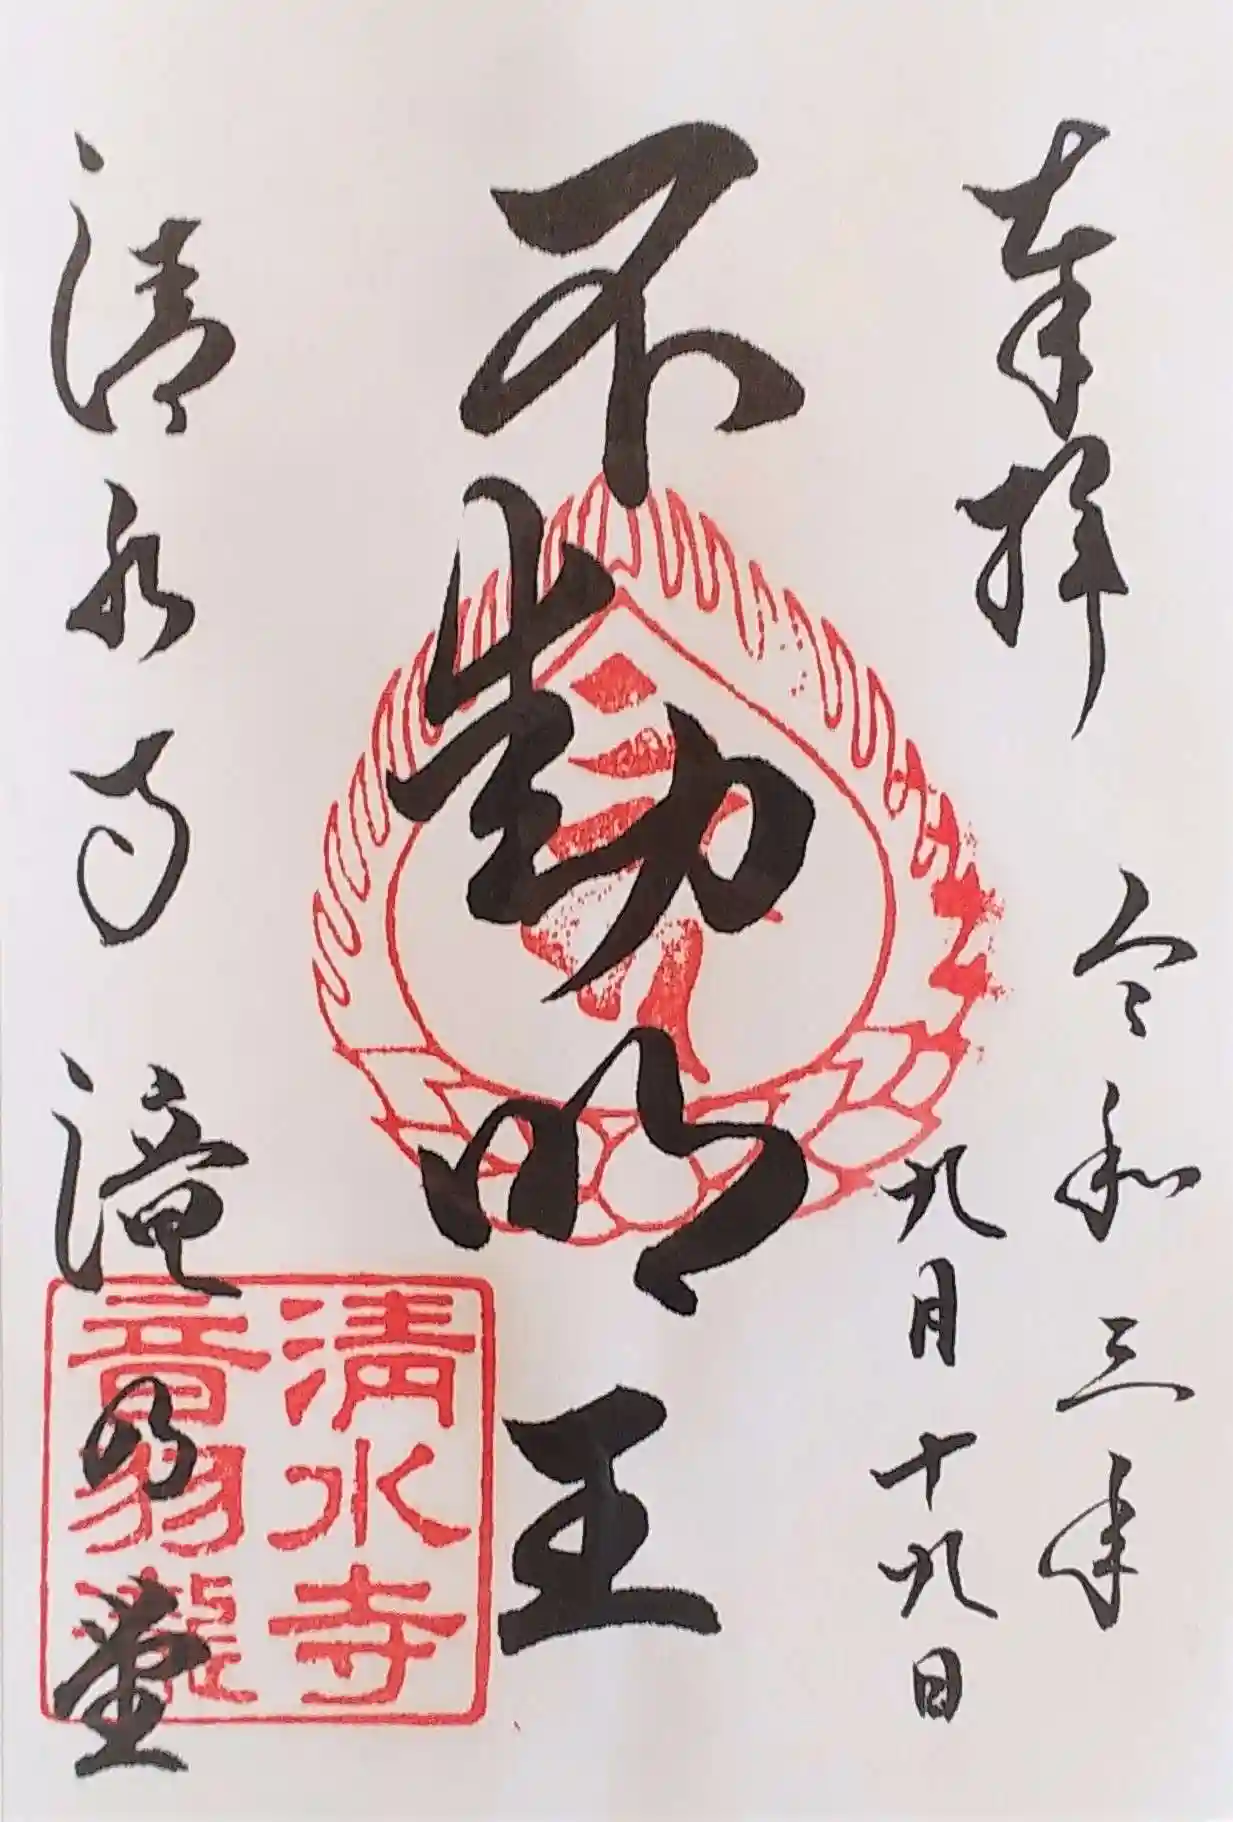 奉拝
令和三年
九月十九日
不動明王
清水寺 滝の堂
清水寺
音羽瀧